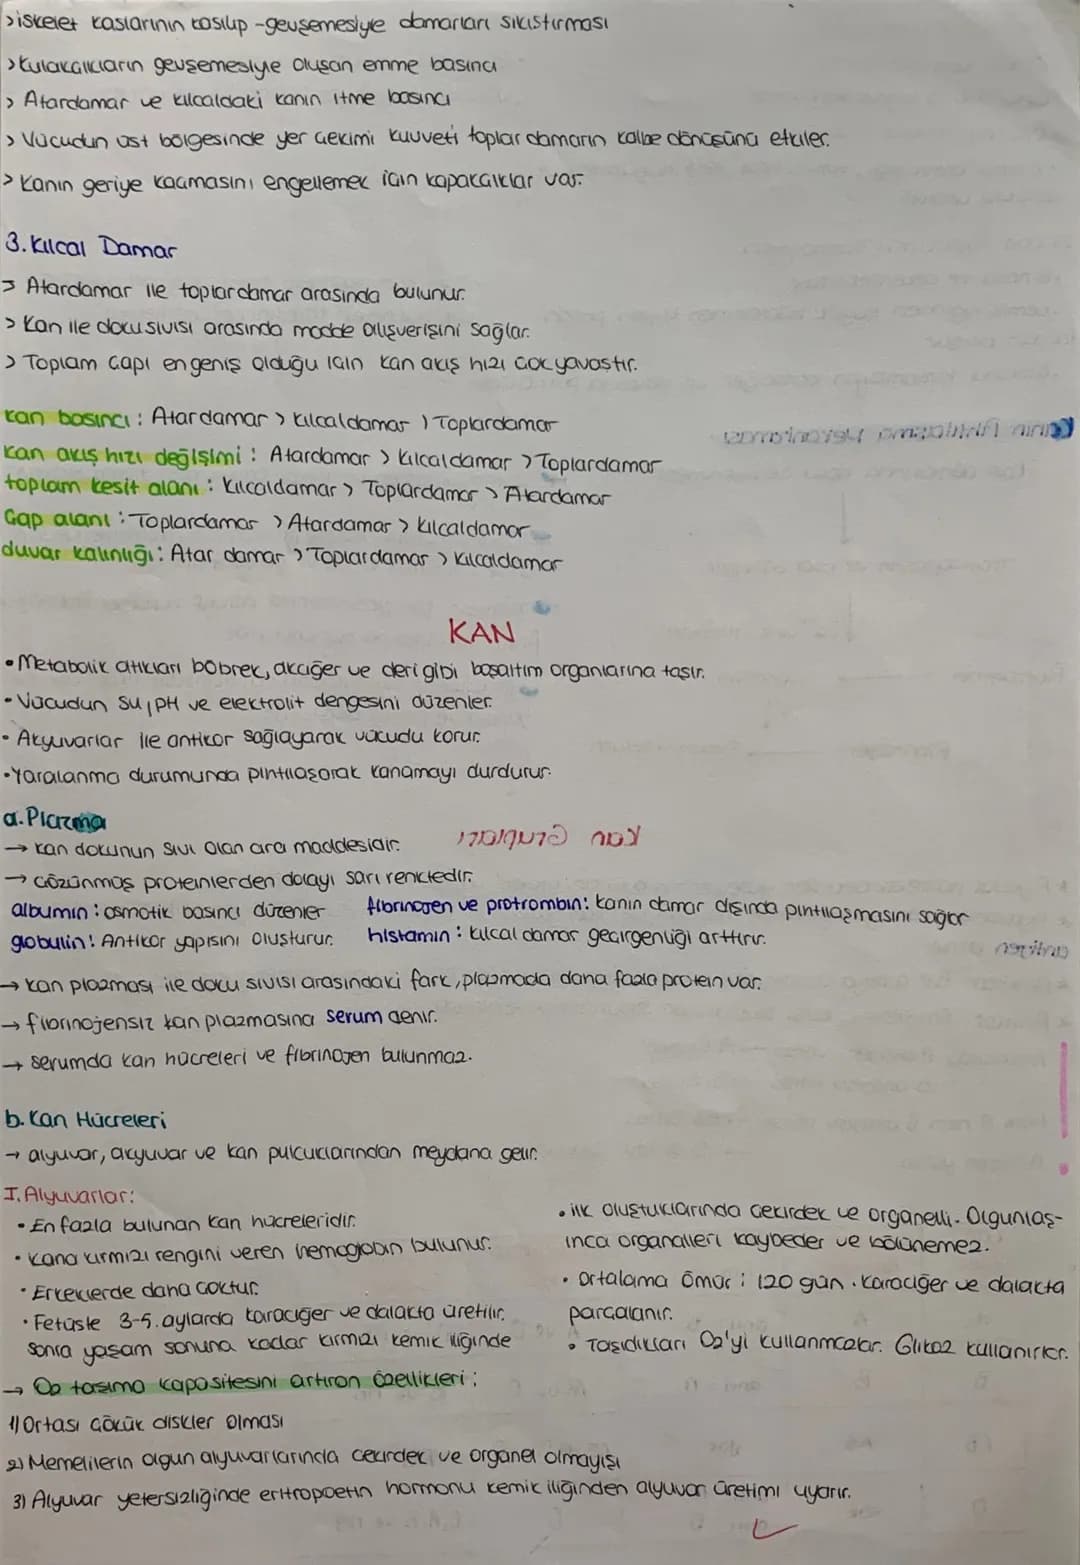 > iskelet kaslarının kasılıp - gevşemesiyle damarları sıkıştırması
> kulakçıkların gevşemesiyle oluşan emme basıncı
> Atardamar ve kılcaldaki kanın itme basıncı
> Vücudun üst bölgesinde yer çekimi kuvveti toplar damarın kalbe dönüşünü etkiler.
> Kanın geriye kaçmasını engellemek için kapakçıklar var.
3. Kılcal Damar
> Atardamar ile toplardamar arasında bulunur.
> Kan ile doku sıvısı arasında madde alışverişini sağlar.
> Toplam çapı en geniş olduğu için kan akış hızı çok yavaştır.
kan basıncı : Atardamar > kılcaldamar > Toplardamar
kan akış hızı değişimi : Atardamar > kılcaldamar > Toplardamar
toplam kesit alanı : kılcaldamar > Toplardamar > Atardamar
Çap alanı : Toplardamar > Atardamar > kılcaldamar
duvar kalınlığı : Atar damar > Toplardamar > kılcaldamar
Kanın Pıhtılaşma Mekanizması
KAN
• Metabolik atıkları böbrek, akciğer ve deri gibi boşaltım organlarına taşır.
• Vücudun su, pH ve elektrolit dengesini düzenler.
• Akyuvarlar ile antikor sağlayarak vücudu korur.
• Yaralanma durumunda pıhtılaşarak kanamayı durdurur.
a. Plazma
→ kan dokunun sıvı olan ara maddesidir.
Kan Grupları
→ çözünmüş proteinlerden dolayı sarı renktedir.
albumin : osmotik basıncı düzenler fibrinojen ve protrombin : kanın damar dışında pıhtılaşmasını sağlar
globulin : Antikor yapısını oluşturur. histamin : kılcal damar geçirgenliği arttırır.
antijen
→ kan plazması ile doku sıvısı arasındaki fark, plazmada daha fazla protein var.
→ fibrinojensiz kan plazmasına serum denir.
→ serumda kan hücreleri ve fibrinojen bulunmaz.
b. Kan Hücreleri
→ alyuvar, akyuvar ve kan pulcuklarından meydana gelir.
I. Alyuvarlar:
• En fazla bulunan kan hücreleridir.
• kana kırmızı rengini veren hemoglobin bulunur.
• Erkeklerde daha çoktur.
• Fetüste 3-5. aylarda karaciğer ve dalakta üretilir.
sonra yaşam sonuna kadar kırmızı kemik iliğinde
• ilk oluştuklarında çekirdek ve organelli. Olgunlaş-
ınca organelleri kaybeder ve bölünemez.
• Ortalama ömür : 120 gün. karaciğer ve dalakta
parçalanır.
• Taşıdıkları O2'yi kullanmazlar. Glikoz kullanırlar.
→ O2 taşıma kapasitesini artıran özellikleri :
1) Ortası çökük diskler olması
2) Memelilerin olgun alyuvarlarında çekirdek ve organel olmayışı
3) Alyuvar yetersizliğinde eritropoetin hormonu kemik iliğinden alyuvar üretimi uyarır.